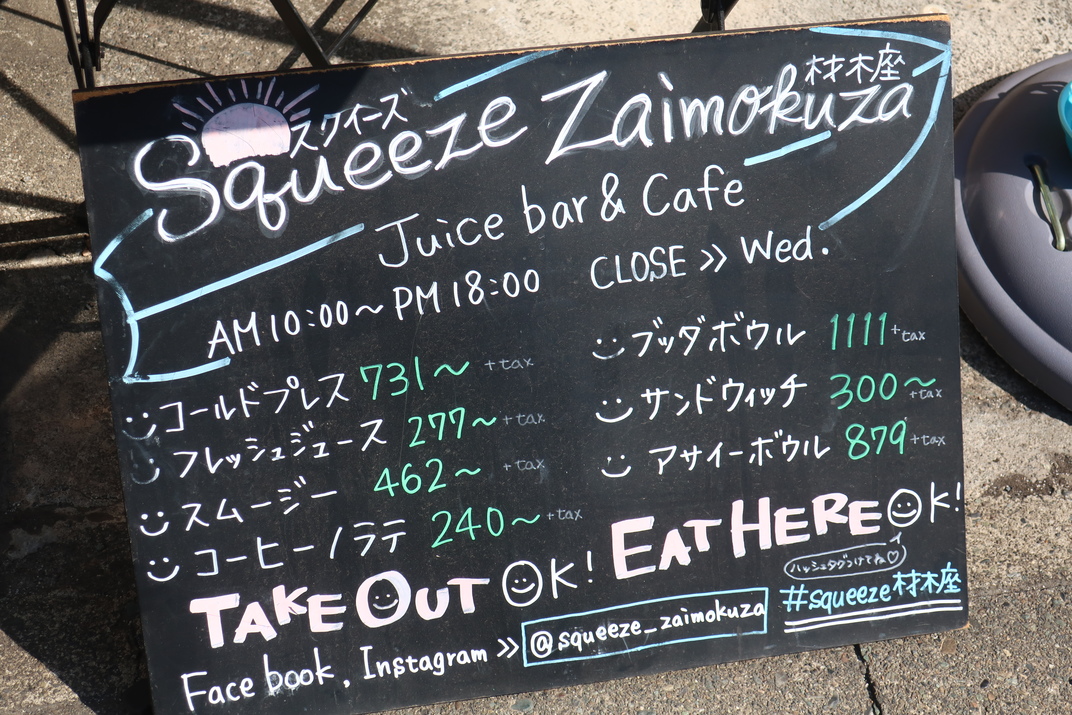 スクイーズ
材木座
Squeeze Zaimokuza
Juice bar & Cafe
AM 10:00～PM 18:00 CLOSE >> Wed.
コールドプレス 731～ +tax
フレッシュジュース 277～ +tax
スムージー 462～ +tax
コーヒー/ラテ 240～ +tax
ブッダボウル 1111 +tax
サンドウィッチ 300～ +tax
アサイーボウル 879 +tax
TAKE OUT OK! EAT HERE OK!
ハッシュタグつけてね♡
#squeeze材木座
Face book, Instagram >> @squeeze_zaimokuza